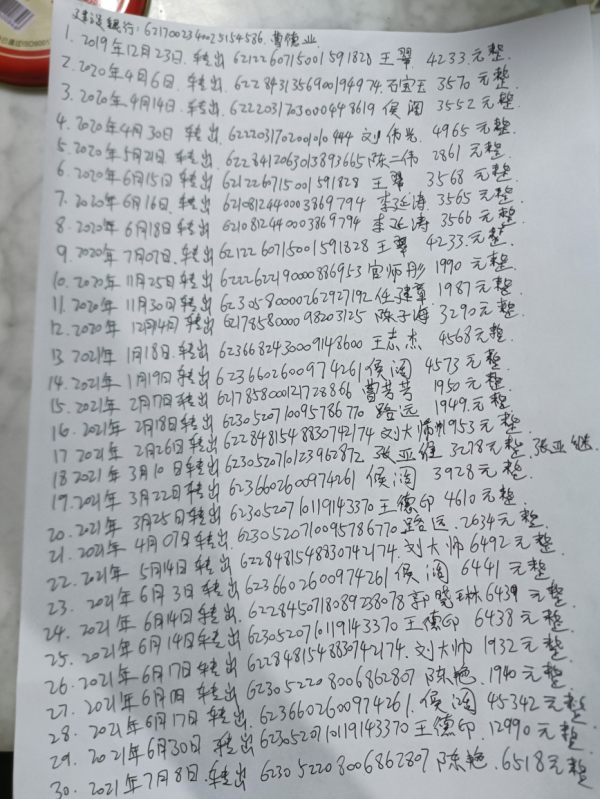 建设银行：6217002340025154586. 曹德业
1. 2019年12月23日. 转出 6212260715001591828 王翠 4233.元整
2. 2020年4月6日. 转出 6228431356900194974. 石宝玉 3570元整.
3. 2020年4月14日. 转出 6222031703000448619 侯阔 3552元整.
4. 2020年4月30日 转出 6222031702001010444 刘伟光 4965元整.
5. 2020年5月21日. 转出 6228412063013893665 陈二伟 2861元整.
6. 2020年6月15日 转出 6212260715001591828 王翠 3568元整.
7. 2020年6月16日. 转出 6210812440003869794 李延涛 3565元整.
8. 2020年6月18日 转出 6210812440003869794 李延涛 3566元整.
9. 2020年7月07日. 转出 6212260715001591828 王翠 4233.元整.
10. 2020年11月25日转出 6222622190000886953 宫师彤 1990元整.
11. 2020年11月30日转出 6230580000262927192 任建革 1987元整.
12. 2020年12月4日 转出 6217858000098203125 陈子海 3290元整.
13 2021年1月18日. 转出 6236682430009148600 王志杰 4568元整.
14. 2021年1月19日 转出 6236602600974261 侯阔 4573元整.
15. 2021年2月17日 转出 6217858000121728866 曹芳芳 1950元整.
16. 2021年2月18日 转出 6230520710095786770 路远 1949.元整.
17 2021年2月26日 转出 6228481548830742174 刘大帅 1953元整.
18 2021年3月10日 转出 6230520710123962872 张亚继 3278元整. 张亚继.
19. 2021年3月22日转出 6236602600974261 侯阔 3928元整.
20. 2021年3月25日转出 6230520710119143370 王德印 4610元整.
21. 2021年4月07日转出. 6230520710095786770 路远. 2634元整.
22. 2021年5月14日. 转出 6228481548830742174. 刘大帅 6492元整.
23. 2021年6月3日转出 6236602600974261 侯阔 6441元整.
24. 2021年6月14日. 转出 6228450718089238078 郭晓琳 6439元整.
25. 2021年6月14日转出 6230520710119143370 王德印 6438元整.
26. 2021年6月17日转出 6228481548830742174. 刘大帅 1932元整.
27. 2021年6月 日 转出 6230522080068 62807 陈艳. 1940元整.
28. 2021年6月17日. 转出. 6236602600974261. 侯阔 45342元整.
29. 2021年6月30日. 转出 6230520710119143370 王德印. 12990元整.
30. 2021年7月8日. 转出 6230522080068 62807 陈艳. 6518元整